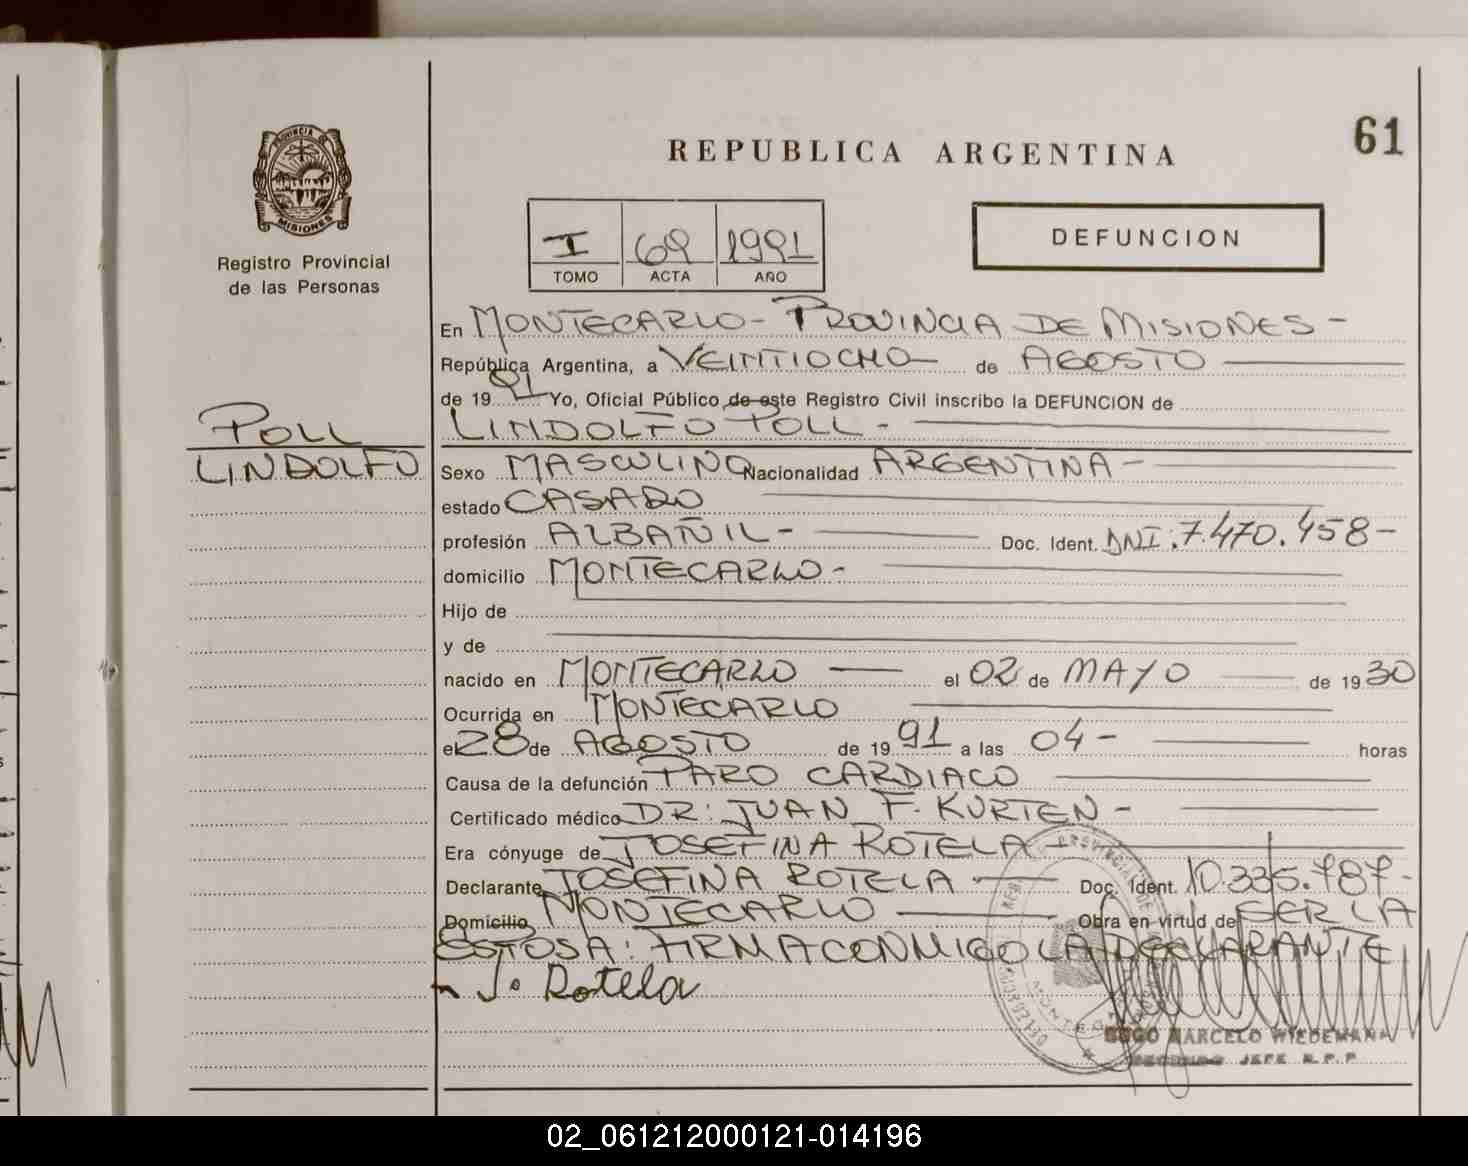 61
REPUBLICA ARGENTINA
PROVINCIA DE
MISIONES
Registro Provincial
de las Personas
I 69 1991
TOMO ACTA AÑO
DEFUNCION
En MONTECARLO - PROVINCIA DE MISIONES -
República Argentina, a VEINTIOCHO de AGOSTO
de 19 91 Yo, Oficial Público de este Registro Civil inscribo la DEFUNCION de
POLL
LINDOLFO
LINDOLFO POLL -
Sexo MASCULINO Nacionalidad ARGENTINA -
estado CASADO
profesión ALBAÑIL - Doc. Ident. DNI: 7.470.458 -
domicilio MONTECARLO -
Hijo de
y de
nacido en MONTECARLO el 02 de MAYO de 1930
Ocurrida en MONTECARLO
el 28 de AGOSTO de 19 91 a las 04 - horas
Causa de la defunción PARO CARDIACO
Certificado médico DR: JUAN F. KURTEN -
Era cónyuge de JOSEFINA ROTELA -
Declarante JOSEFINA ROTELA - Doc. Ident. 10.335.787 -
Domicilio MONTECARLO Obra en virtud de SER LA
ESPOSA: FIRMA CONMIGO LA DECLARANTE
J. Rotela
HUGO MARCELO WIEDEMANN
JEFE R.P.P.
02_061212000121-014196